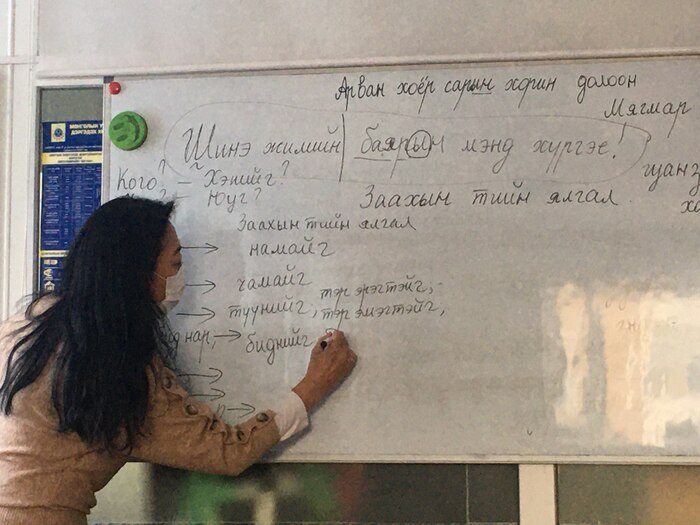 Арван хоёр сарын хорин долоон
Мягмар
Шинэ жилийн баярын мэнд хүргэе!
Кого? = Хэнийг?
? = Юуг?
Заахын тийн ялгал.
Заахын тийн ялгал
→ намайг
→ чамайг
→ түүнийг, тэр эрэгтэйг,
тэр эмэгтэйг,
нар, → биднийг
МОНГОЛЫН